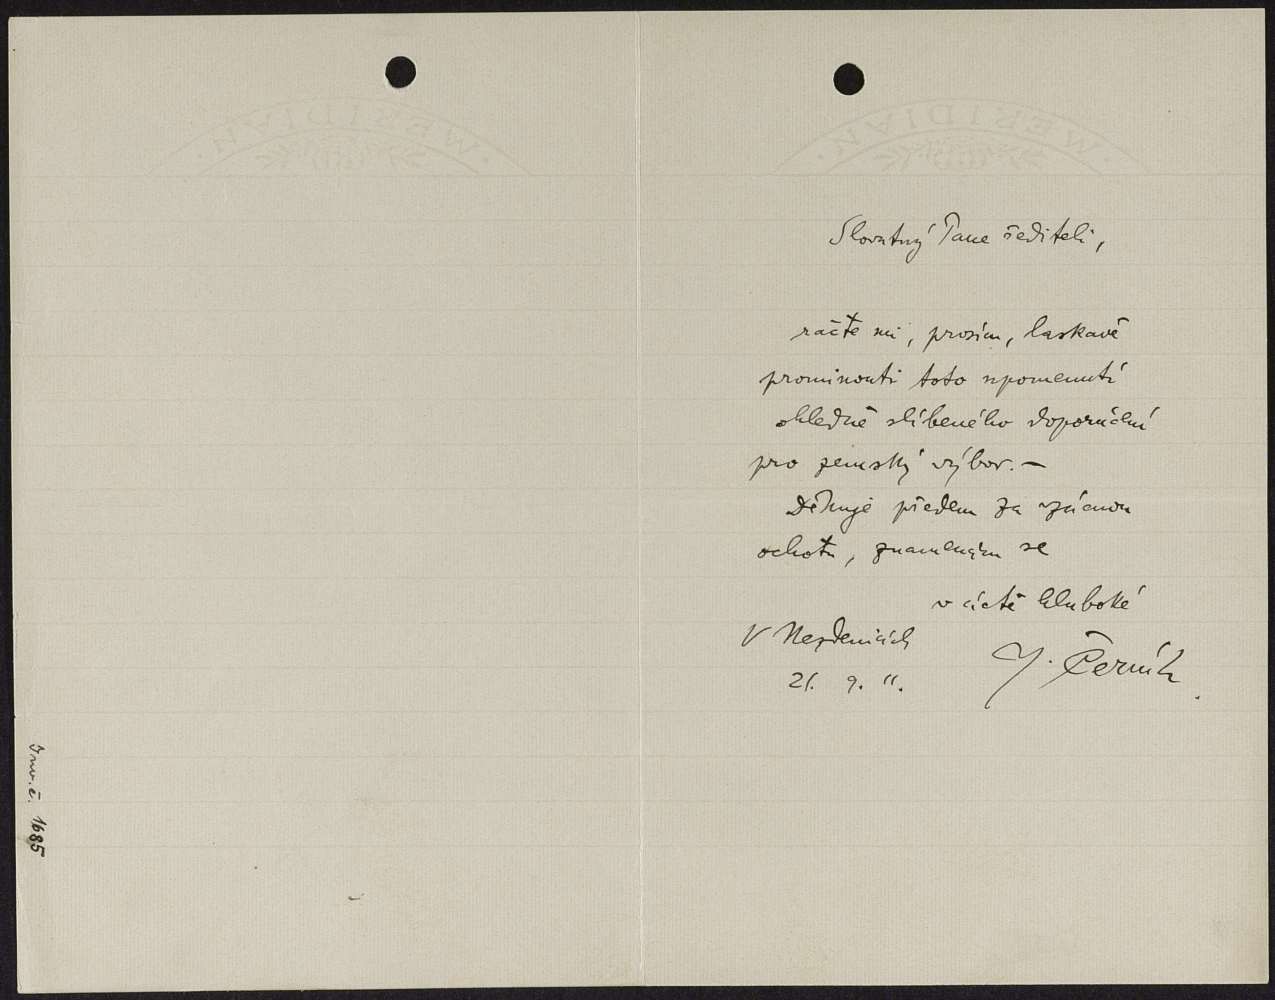 Slovutný Pane řediteli,
račte mi, prosím, laskavě
prominouti toto upomenutí
ohledně slíbeného doporučení
pro zemský výbor. —
Děkuje předem za vzácnou
ochotu, znamenám se
v úctě hluboké
V Nezdenicích
21. 9. 11.
J. Černík.
Inv. č. 1685
MERIDIAN
MERIDIAN